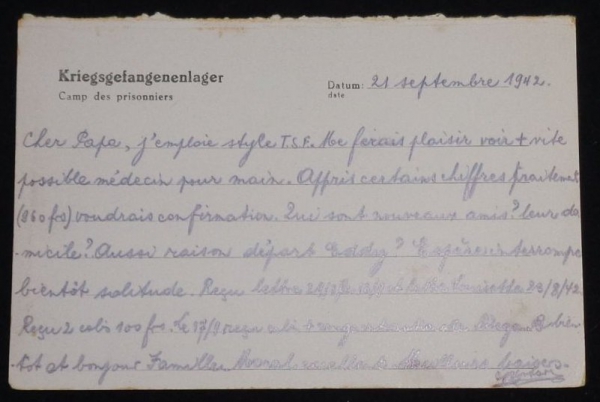 Kriegsgefangenenlager
Camp des prisonniers
Datum: 21 septembre 1942.
date
Cher Papa, j'emploie style T.S.F. Me ferais plaisir voir + vite
possible médecin pour main. Appris certains chiffres traitement
(860 frs) voudrais confirmation. Qui sont nouveaux amis? leur do
micile? Aussi raison départ Eddy? Espère interrompre
bientôt solitude. Reçu lettre 23/8/42
Reçu 2 colis 100 frs. Le 17/9 reçu colis bien
tôt et bonjour Famille. Moral Meilleurs baisers.